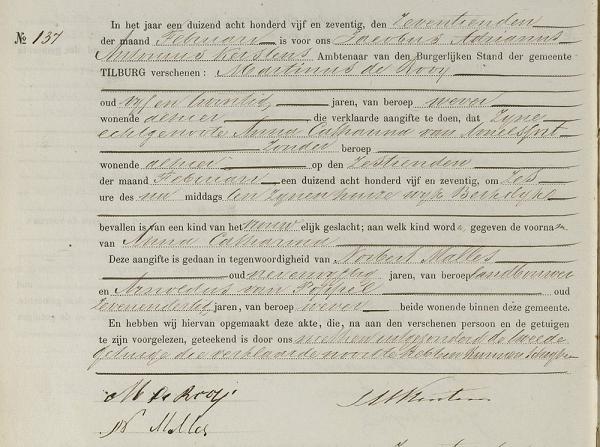 In het jaar een duizend acht honderd vijf en zeventig, den Zeventienden
№ 137 der maand Februari is voor ons Jacobus Adrianus
Antonius Kerstens Ambtenaar van den Burgerlijken Stand der gemeente
TILBURG verschenen: Martinus de Rooy
oud vyf en twintig jaren, van beroep wever
wonende alhier die verklaarde aangifte te doen, dat Zyne
echtgenoote Anna Catharina van Amelsfort
Zonder beroep
wonende alhier op den Zestienden
der maand Februari een duizend acht honderd vijf en zeventig, om Zes
ure des na middags ten Zynen huize wyk Berkdyk
bevallen is van een kind van het vrouw elijk geslacht; aan welk kind word gegeven de voorna
van Anna Catharina
Deze aangifte is gedaan in tegenwoordigheid van Norbert Malles
oud jaren, van beroep landbouwer
en Arnoldus van oud
Zevenendertig jaren, van beroep wever beide wonende binnen deze gemeente.
En hebben wij hiervan opgemaakt deze akte, die, na aan den verschenen persoon en de getuigen
te zijn voorgelezen, geteekend is door ons uitgezonderd de tweede
getuige die verklaarde niet te
M de Rooij
N Malles